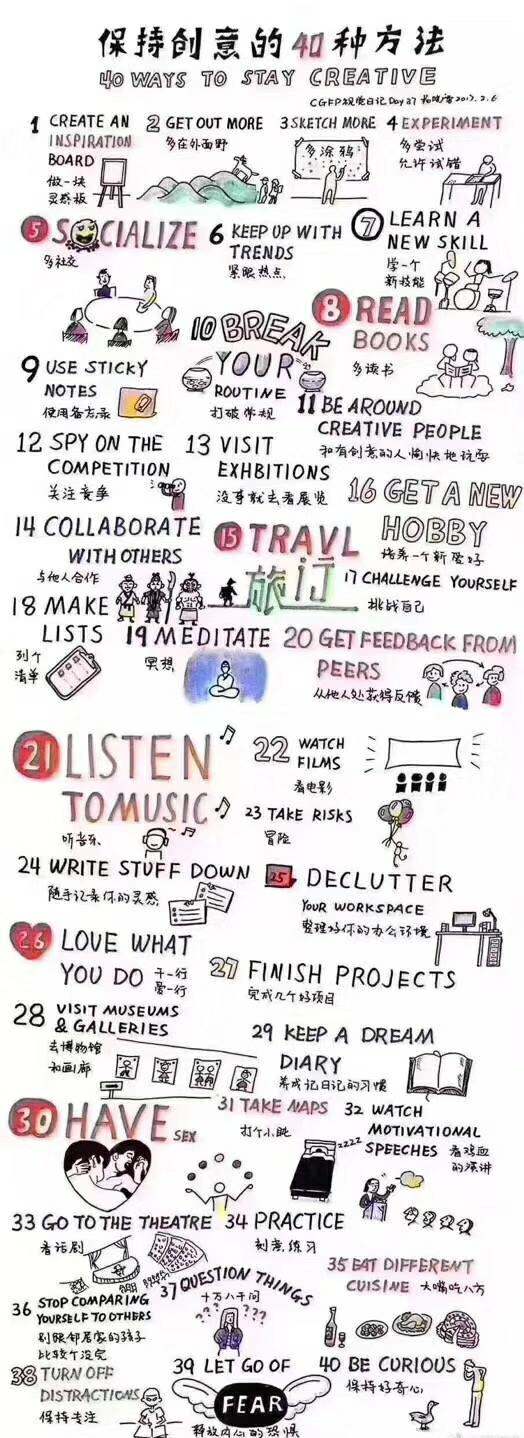 保持创意的40种方法
40 WAYS TO STAY CREATIVE
CGFP视觉日记Day37
2017.2.6
1 CREATE AN
INSPIRATION
BOARD
做一块
灵感板
2 GET OUT MORE
多在外面野
3 SKETCH MORE
多涂鸦
4 EXPERIMENT
多尝试
允许试错
5 SOCIALIZE
多社交
6 KEEP UP WITH
TRENDS
紧跟热点
7 LEARN A
NEW SKILL
学一个
新技能
8 READ
BOOKS
多读书
9 USE STICKY
NOTES
使用备忘录
10 BREAK
YOUR
ROUTINE
打破常规
11 BE AROUND
CREATIVE PEOPLE
和有创意的人愉快地玩耍
12 SPY ON THE
COMPETITION
关注竞争
13 VISIT
EXHBITIONS
没事就去看展览
14 COLLABORATE
WITH OTHERS
与他人合作
15 TRAVL
旅行
16 GET A NEW
HOBBY
培养一个新爱好
17 CHALLENGE YOURSELF
挑战自己
18 MAKE
LISTS
列个
清单
19 MEDITATE
冥想
20 GET FEEDBACK FROM
PEERS
从他人处获得反馈
21 LISTEN
TO MUSIC
听音乐
22 WATCH
FILMS
看电影
23 TAKE RISKS
冒险
24 WRITE STUFF DOWN
随手记录你的灵感
25 DECLUTTER
YOUR WORKSPACE
整理好你的办公环境
26 LOVE WHAT
YOU DO
干一行
爱一行
27 FINISH PROJECTS
完成几个好项目
28 VISIT MUSEUMS
& GALLERIES
去博物馆
和画廊
29 KEEP A DREAM
DIARY
养成记日记的习惯
30 HAVE SEX
31 TAKE NAPS
打个小盹
zzzz
32 WATCH
MOTIVATIONAL
SPEECHES
看鸡血
的演讲
33 GO TO THE THEATRE
看话剧
34 PRACTICE
刻意练习
35 EAT DIFFERENT
CUISINE
大嘴吃八方
36 STOP COMPARING
YOURSELF TO OTHERS
别跟邻居家的孩子
比较个没完
37 QUESTION THINGS
十万个千问
? ? ? ? ? ?
38 TURN OFF
DISTRACTIONS
保持专注
39 LET GO OF
FEAR
释放内心的恐惧
40 BE CURIOUS
保持好奇心